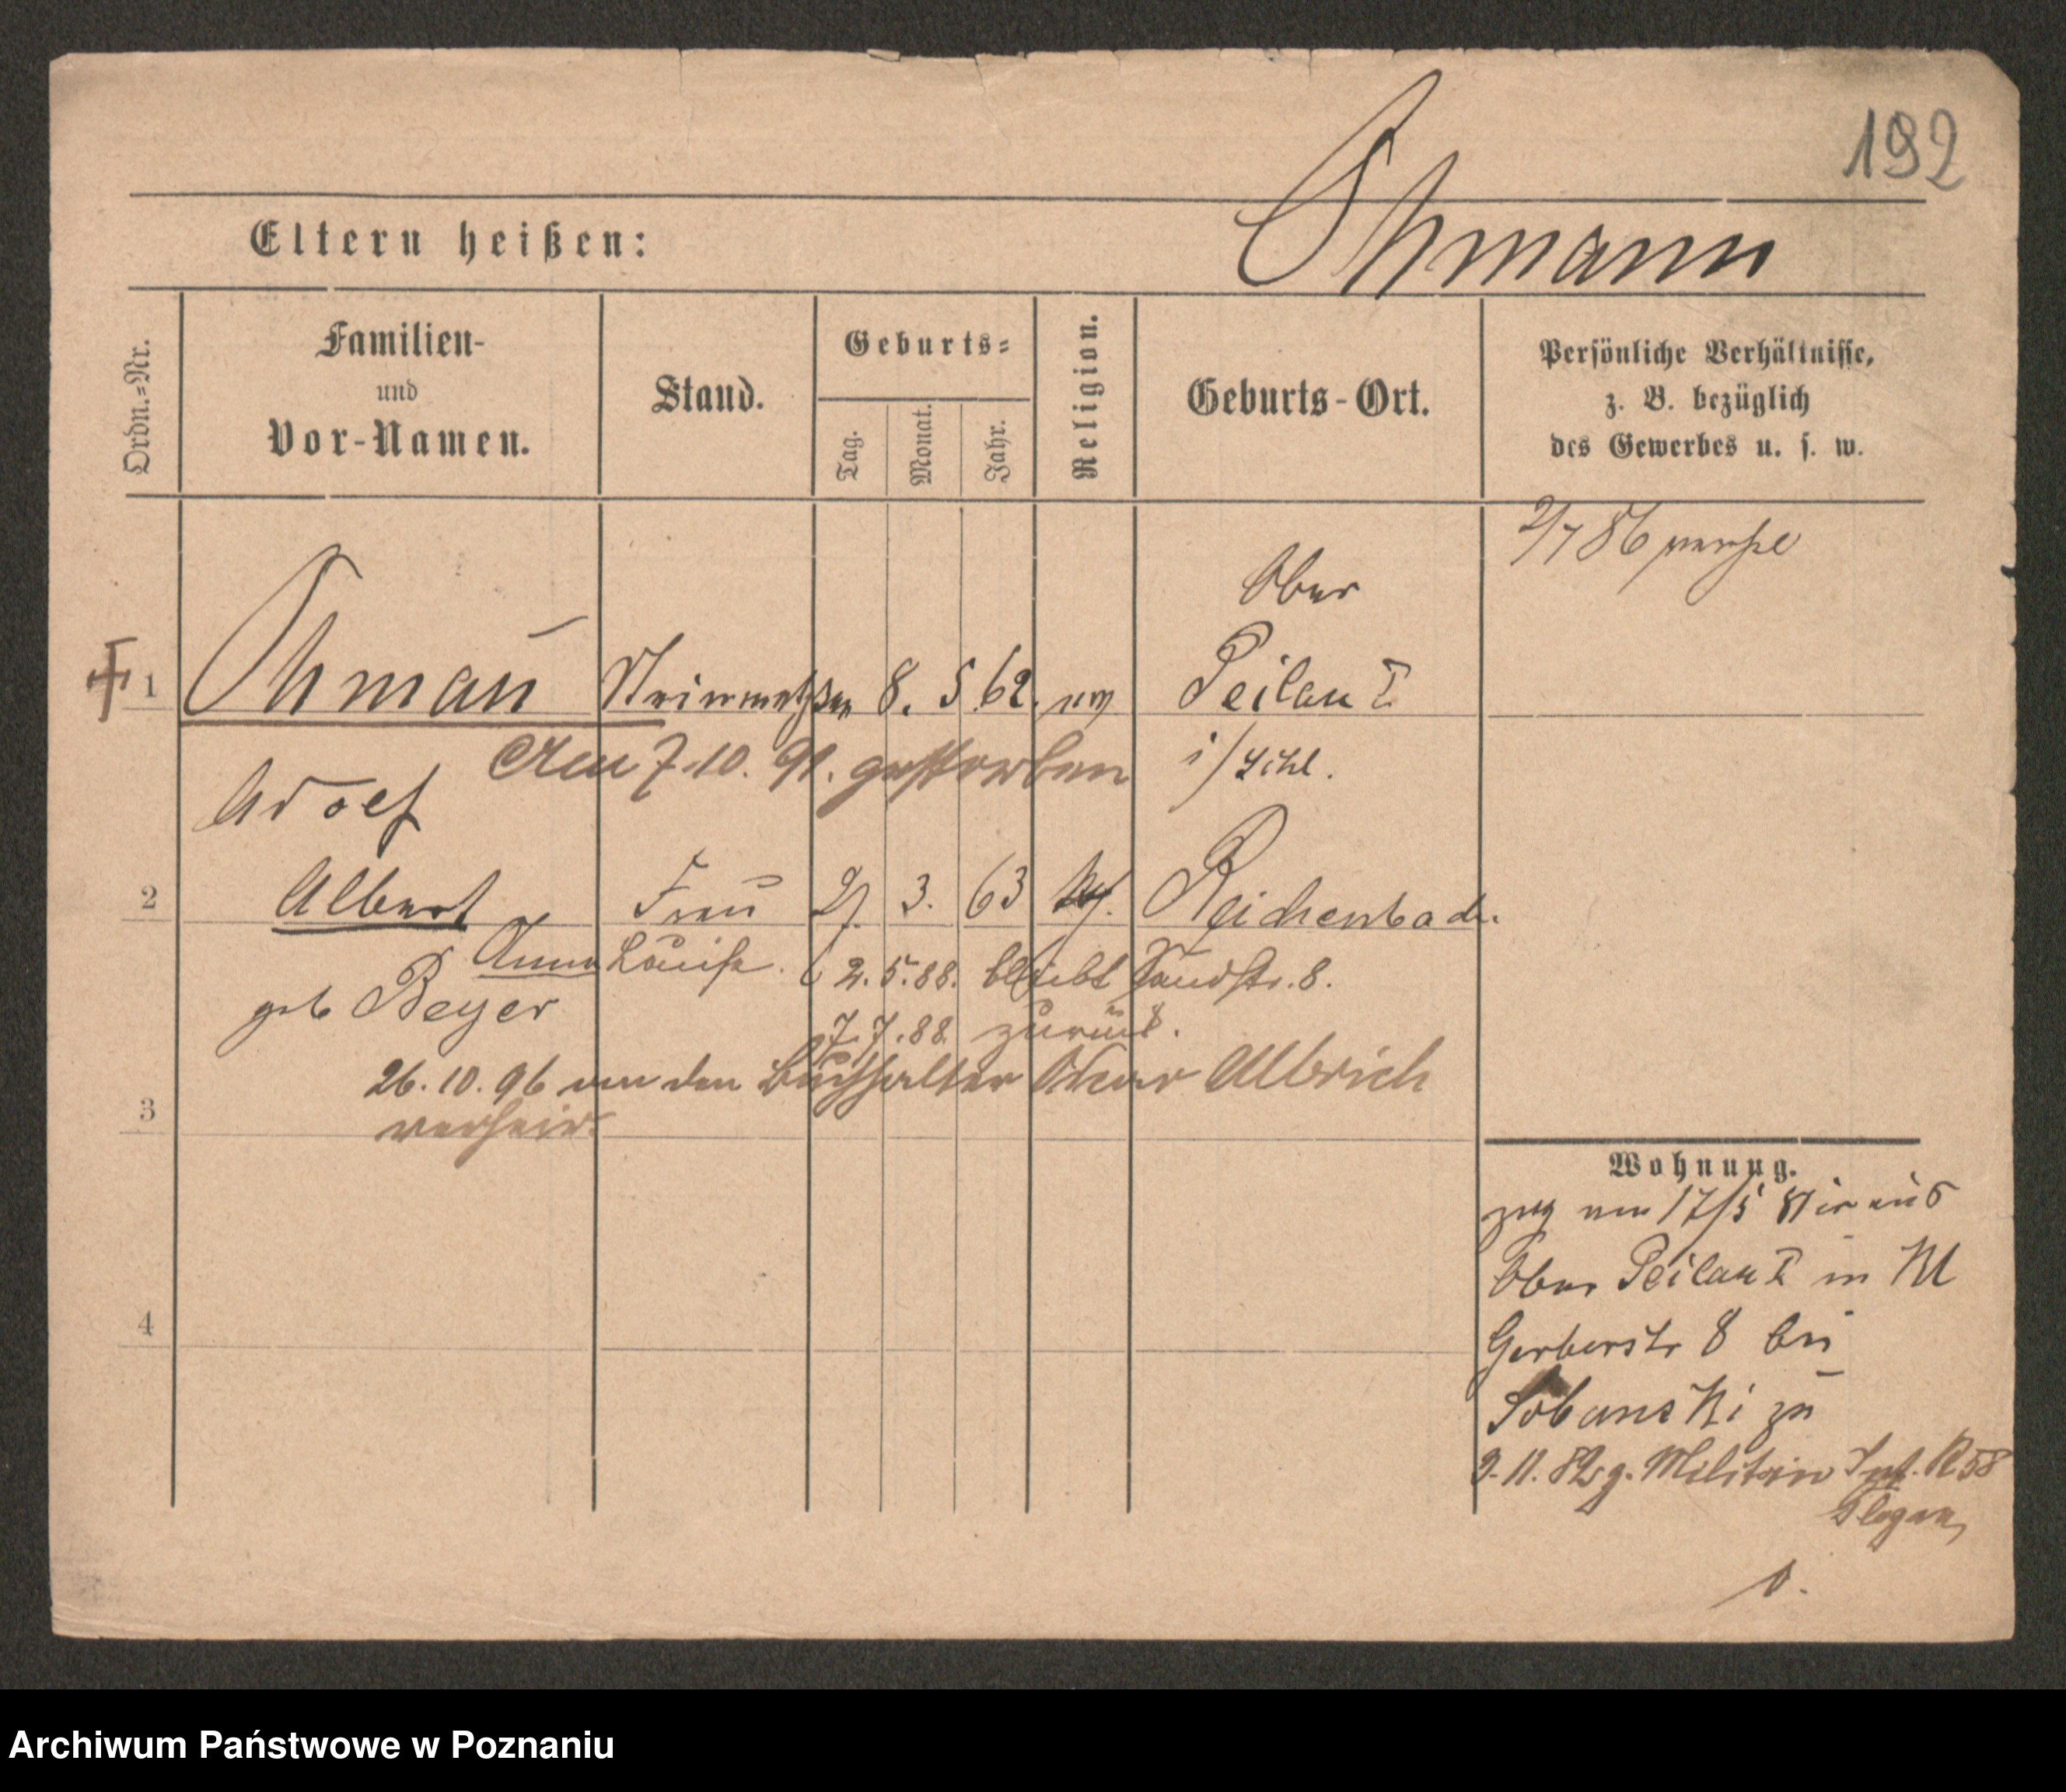 192
Ohmann
Eltern heißen:
Ordn.=Nr.
Familien-
und
Vor-Namen.
Stand.
Geburts=
Tag.
Monat.
Jahr.
Religion.
Geburts-Ort.
Persönliche Verhältnisse,
z. B. bezüglich
des Gewerbes u. s. w.
2/7 86
Ober
1 Ohman̄ Steinmetz 8. 5 62. Peilau I
Am 7.10. 91. gestorben
i/Schl.
Adolf
2 Albert Frau 3. 63 Reichenbach.
Anna Louise. 2.5.88. bleibt Sandstr. 8.
geb Beyer
7.7.88 zurück.
26.10.96 an den Buchhalter Oscar Ulbrich
3
verheir.
Wohnung.
zog am 17/5 aus
Ober Peilau I in
4
Gerberstr 8 bei
Sobanski zu
9.11.82 z. Militair Inf. R 58
Glogau